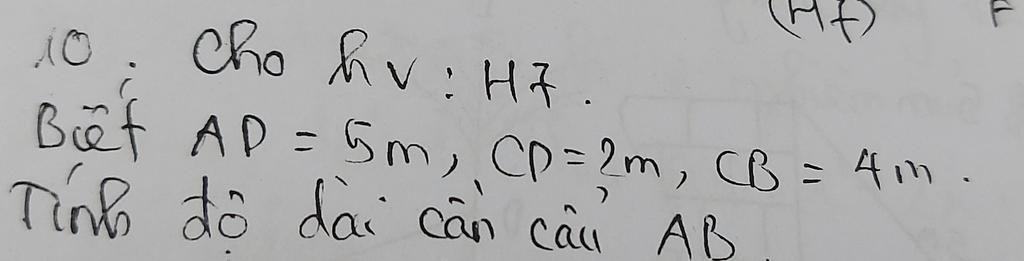 (H7) F
10. Cho hv: H7.
Biết AD = 5m, CD = 2m, CB = 4m.
Tính độ dài cần cẩu AB.